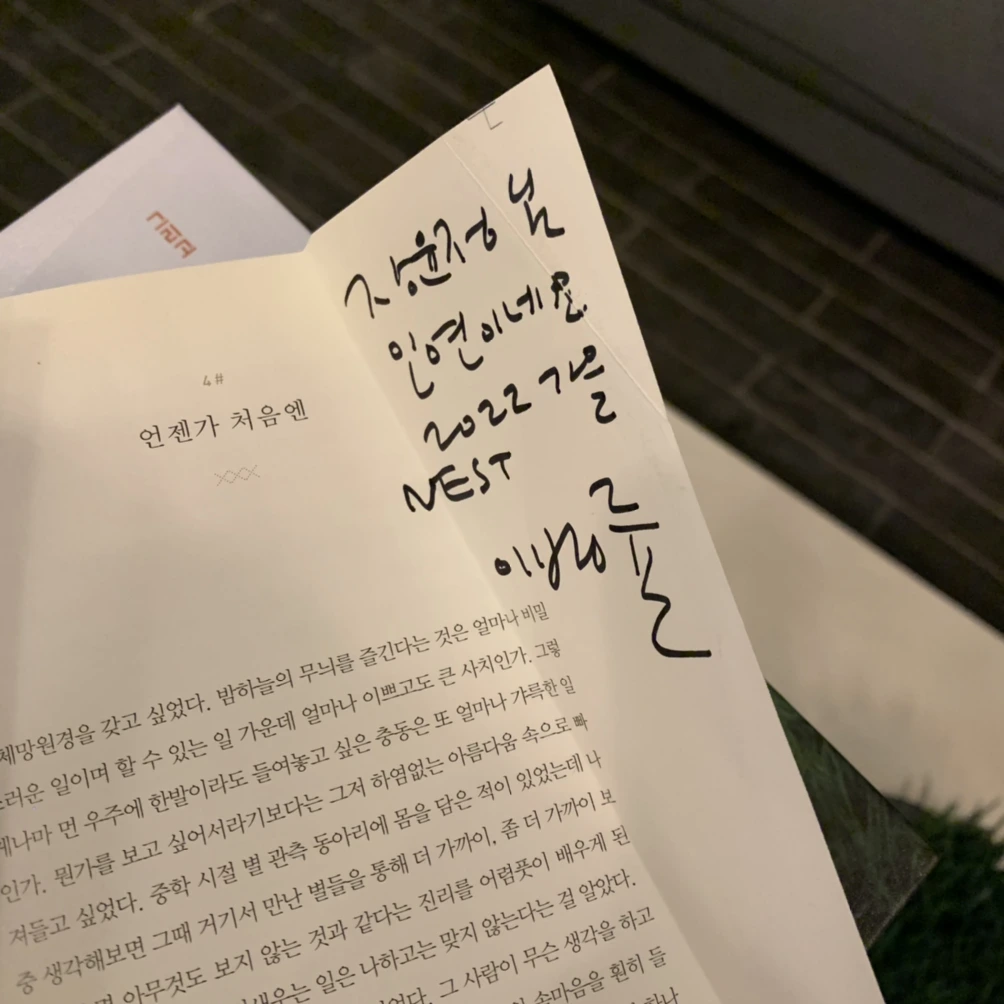 장윤정 님
인연이네요.
2022 가을
NEST
이병률
4#
언젠가 처음엔
체망원경을 갖고 싶었다. 밤하늘의 무늬를 즐긴다는 것은 얼마나 비밀
스러운 일이며 할 수 있는 일 가운데 얼마나 이쁘고도 큰 사치인가. 그렇
게나마 먼 우주에 한발이라도 들여놓고 싶은 충동은 또 얼마나 갸륵한 일
인가. 뭔가를 보고 싶어서라기보다는 그저 하염없는 아름다움 속으로 빠
져들고 싶었다. 중학 시절 별 관측 동아리에 몸을 담은 적이 있었는데 나
중 생각해보면 그때 거기서 만난 별들을 통해 더 가까이, 좀 더 가까이 보
면 아무것도 보지 않는 것과 같다는 진리를 어렴풋이 배우게 된
배우는 일은 나하고는 맞지 않는다는 걸 알았다.
그 사람이 무슨 생각을 하고
속마음을 훤히 들